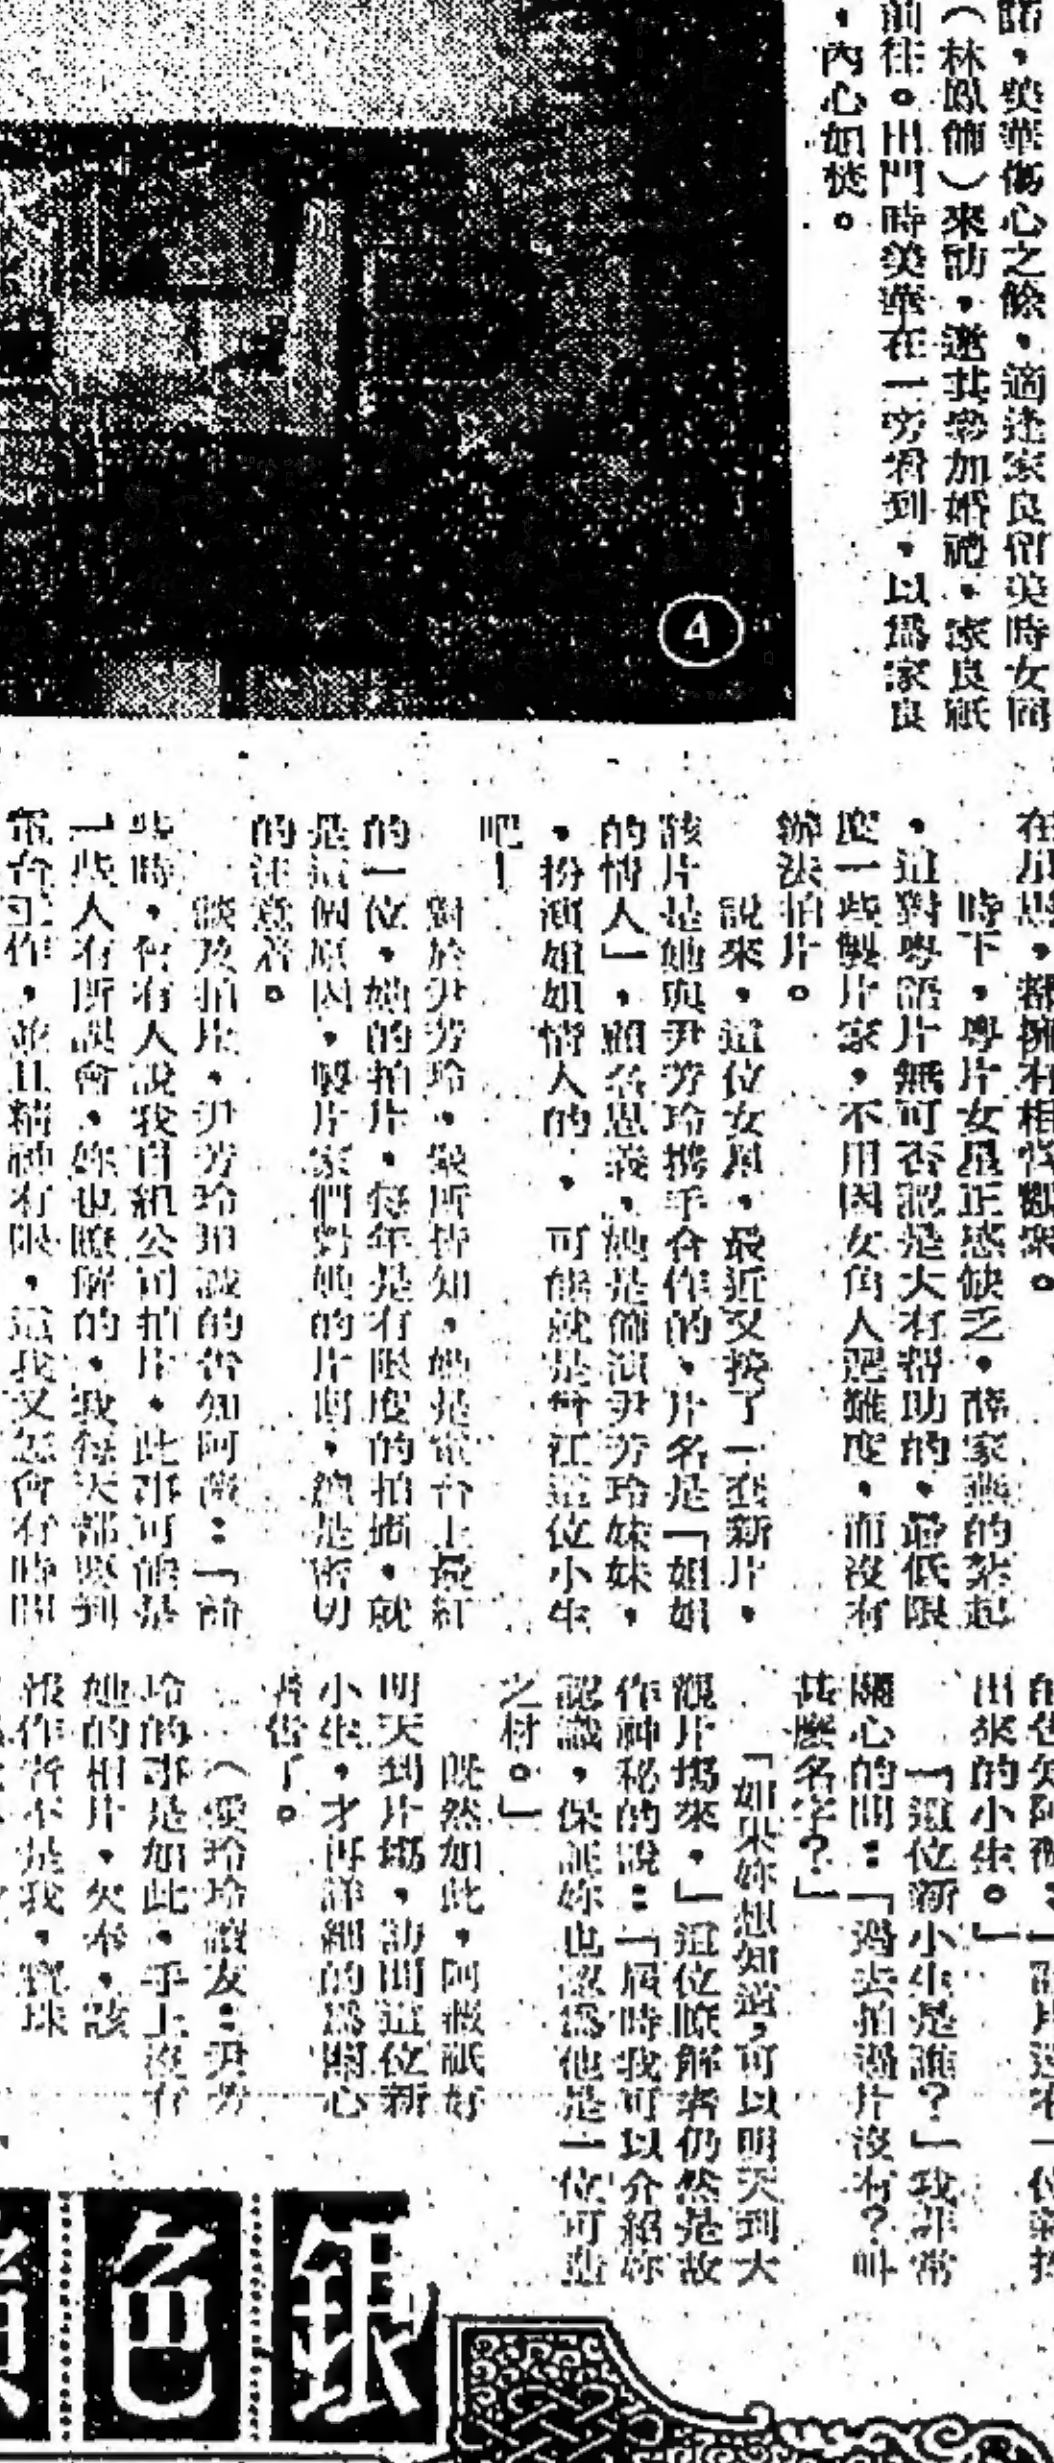 語,美華傷心之餘,適逢家良留美時女同
(林鳳飾)來訪,邀其參加婚禮,家良祇
前往。出門時美華在一旁看到,以爲家良
,內心如焚。
④
在那馬,都擁有相當觀衆。
時下,粵片女星正感缺乏,薛家燕的紮起
,這對粵語片無可否認是大有帮助的,最低限
度一些製片家,不用因女角人選難度,而沒有
辦法拍片。
說來,這位女星,最近又接了一套新片,
該片是她與尹芳玲携手合作的,片名是「姐姐
的情人」,顧名思義,她是飾演尹芳玲妹妹,
,扮演姐姐情人的,可能就是曾江這位小生
吧!
對於尹芳玲,衆所皆知,她是電台上最紅
的一位,她的拍片,每年是有限度的拍攝,就
是這個原因,製片家們對她的片期,總是密切
的注意着。
談及拍片,尹芳玲坦誠的告知阿薇:「前
些時,曾有人說我自組公司拍片,此事可能是
一些人有所誤會,妳也瞭解的,我每天都要到
電台工作,並且精神有限,這我又怎會有時間
出來的小生。」
「這位新小生是誰?」我非常
關心的問:「過去拍過片沒有?叫
甚麼名字?」
「如果妳想知道,可以明天到大
觀片塲來,」這位瞭解者仍然是故
作神秘的說:「屆時我可以介紹妳
認識,保証妳也認爲他是一位可造
之材。」
既然如此,阿薇祇好
明天到片塲,訪問這位新
小生,才再詳細的爲關心
者告了。
(愛玲玲讀友:尹芳
玲的事是如此,手上沒有
她的相片,欠奉,該
報作者不是我,寶珠
銀色